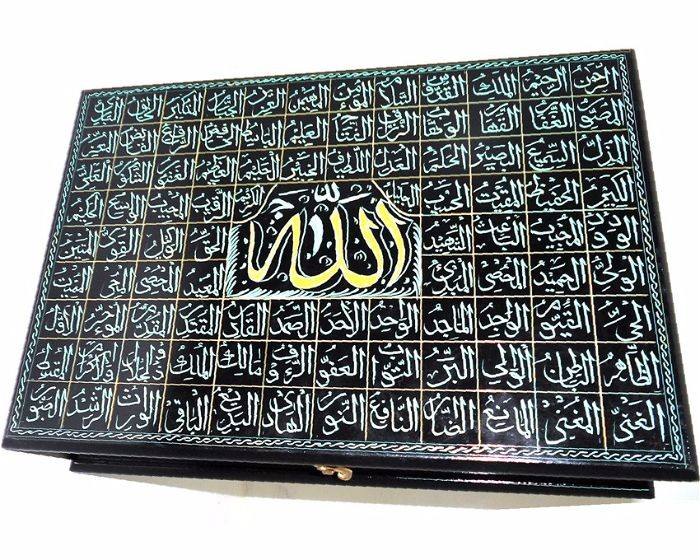 الرحمن الرحيم الملك القدوس السلام المؤمن المهيمن العزيز الجبار المتكبر الخالق البارئ
المصور الغفار القهار الوهاب الرزاق الفتاح العليم القابض الباسط الخافض الرافع المعز
المذل السميع البصير الحكم العدل اللطيف الخبير الحليم العظيم الغفور الشكور العلي
الكبير الحفيظ المقيت الحسيب الجليل الكريم الرقيب المجيب الواسع الحكيم
الله
الودود المجيد الباعث الشهيد الحق الوكيل القوي المتين
الولي الحميد المحصي المبدئ المعيد المحيي المميت
الحي القيوم الواجد الماجد الواحد الاحد الصمد القادر المقتدر المقدم المؤخر الأول
الظاهر الباطن الوالي البر التواب العفو الرؤف مالك الملك ذوالجلال والاكرام المقسط
الغني المغني المانع الضار النافع النور الهادي البديع الباقي الوارث الرشيد الصبور